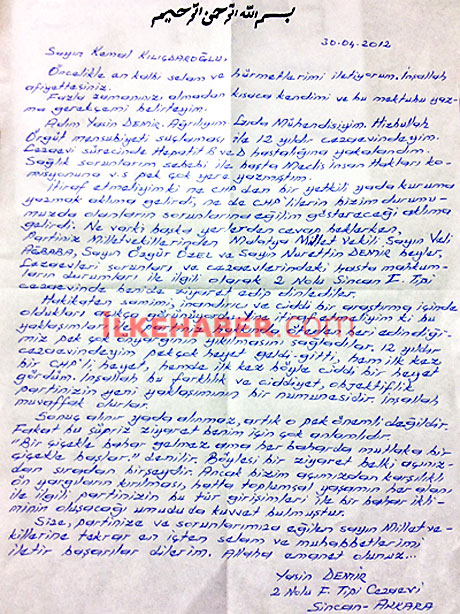 بسم الله الرحمن الرحيم
30.04.2012
Sayın Kemal KILIÇDAROĞLU,
Öncelikle en kalbi selam ve hürmetlerimi iletiyorum. İnşallah
afiyettesiniz.
Fazla zamanınızı almadan kısaca kendimi ve bu mektubu yaz-
ma gerekçemi belirteyim.
Adım Yasin DEMİR. Ağrılıyım. Gıda Mühendisiyim. Hizbullah
Örgüt mensubiyeti suçlaması ile 12 yıldır cezaevindeyim.
Cezaevi sürecinde Hepatit B ve D hastalığına yakalandım.
Sağlık sorunlarım sebebi ile başta Meclis İnsan Hakları ko-
misyonuna v.s pek çok yere yazmıştım.
İtiraf etmeliyim ki ne CHP'den bir yetkili yada kuruma
yazmak aklıma gelirdi, ne de CHP'lilerin bizim durumu-
muzda olanların sorunlarına eğilim göstereceği aklıma
gelirdi. Ne varki başka yerlerden cevap beklerken,
Partiniz Milletvekillerinden Malatya Millet Vekili Sayın Veli
AĞBABA, Sayın Özgür ÖZEL ve Sayın Nurettin DEMİR beyler,
Cezaevleri sorunları ve cezaevlerindeki hasta mahkum-
ların durumları ile ilgili olarak 2 Nolu Sincan F. Tipi
cezaevinde benide ziyaret edip dinlediler.
Hakikaten samimi, inandırıcı ve ciddi bir araştırma içinde
oldukları açıkça görünüyordu. İtiraf etmeliyim ki bu
yaklaşımları
İLKEHABER.COM
beri edindiği-
miz pek çok önyargının yıkılmasını sağladılar. 12 yıldır
cezaevindeyim pekçok heyet geldi-gitti, hem ilk kez
bir CHP'li heyet, hemde ilk kez böyle ciddi bir heyet
gördüm. İnşallah bu farklılık ve ciddiyet, objektiflik
partinizin yeni yaklaşımının bir numunesidir. İnşallah
muvaffak olurlar.
Sonuç alınır yada alınmaz, artık o pek önemli değildir.
Fakat bu süpriz ziyaret benim için çok anlamlıdır.
"Bir çiçekle bahar gelmez ama her baharda mutlaka bir
çiçekle başlar." denilir. Böylesi bir ziyaret belki açınız-
dan sıradan birşeydir. Ancak bizim açımızdan karşılıklı
ön yargıların kırılması, hatta toplumsal yaşamın her alanı
ile ilgili partinizin bu tür girişimleri ile bir bahar ikli-
minin oluşacağı umududa kuvvet bulmuştur.
Size, partinize ve sorunlarımıza eğilen sayın Milletve-
killerine tekrar en içten selam ve muhabbetlerimi
iletir başarılar dilerim. Allaha emanet olunuz...
Yasin DEMİR
2 Nolu F. Tipi Cezaevi
Sincan-ANKARA